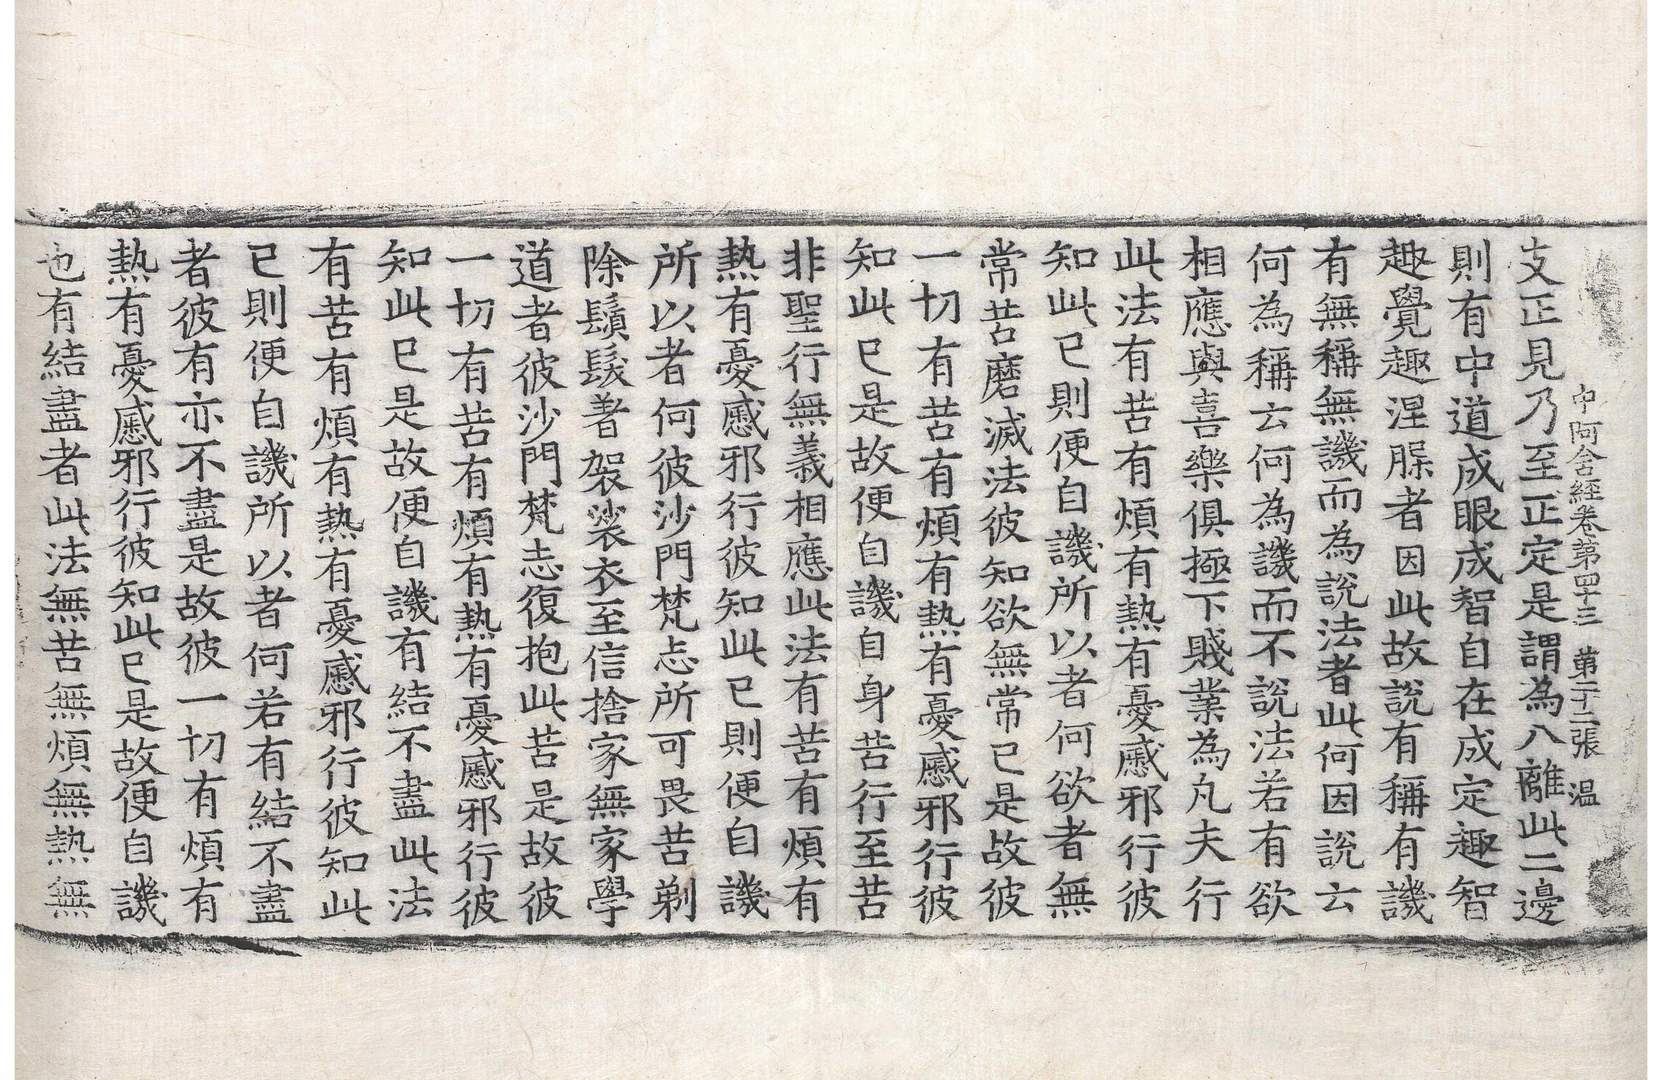 中阿含經卷第四十三 第二十二張 温
支正見乃至正定是謂為八離此二邊
則有中道成眼成智自在成定趣智
趣覺趣涅槃者因此故說有稱有譏
有無稱無譏而為說法者此何因說云
何為稱云何為譏而不說法若有欲
相應與喜樂俱極下賤業為凡夫行
此法有苦有煩有熱有憂慼邪行彼
知此已則便自譏所以者何欲者無
常苦磨滅法彼知欲無常已是故彼
一切有苦有煩有熱有憂慼邪行彼
知此已是故便自譏自身苦行至苦
非聖行無義相應此法有苦有煩有
熱有憂慼邪行彼知此已則便自譏
所以者何彼沙門梵志所可畏苦剃
除鬚髮著袈裟衣至信捨家無家學
道者彼沙門梵志復抱此苦是故彼
一切有苦有煩有熱有憂慼邪行彼
知此已是故便自譏有結不盡此法
有苦有煩有熱有憂慼邪行彼知此
已則便自譏所以者何若有結不盡
者彼有亦不盡是故彼一切有煩有
熱有憂慼邪行彼知此已是故便自譏
也有結盡者此法無苦無煩無熱無